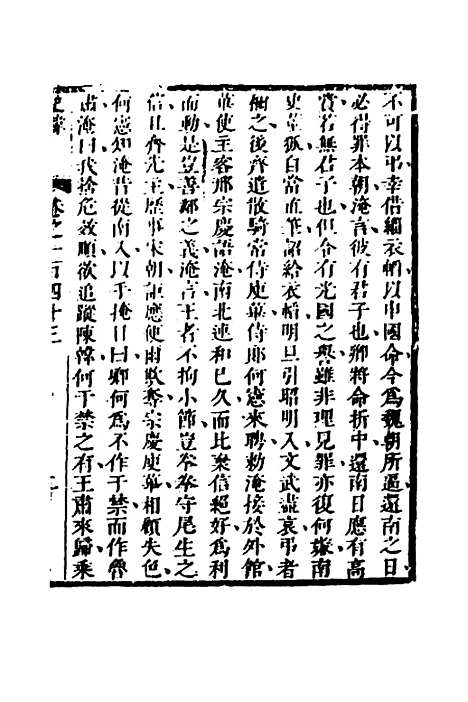 不可以弔幸借緇衣帢以申國命今爲魏朝所逼還南之日
必得罪本朝淹言彼有君子也卿將命折中還南日應有高
賞若無君子也但令有光國之譽雖非理見罪亦復何嫌南
史董狐自當直筆詔給衣帢明旦引昭明入文武盡哀弔者
神之後齊遣散騎常侍庾蓽侍郎何憲來聘敕淹接於外館
蓽使主客邢宗慶語淹南北連和已久而比棄信絕好爲利
而動是豈善鄰之義淹言王者不拘小節豈岑岑守尾生之
信且齊先王歷事宋朝詎應便爾欺奪宗慶庾蓽相顧失色
何憲知淹昔從南入以手掩目曰卿何爲不作于禁而作魯
肅淹曰我捨危效順欲追蹤陳韓何于禁之有王肅來歸乘
卷之一百四十三